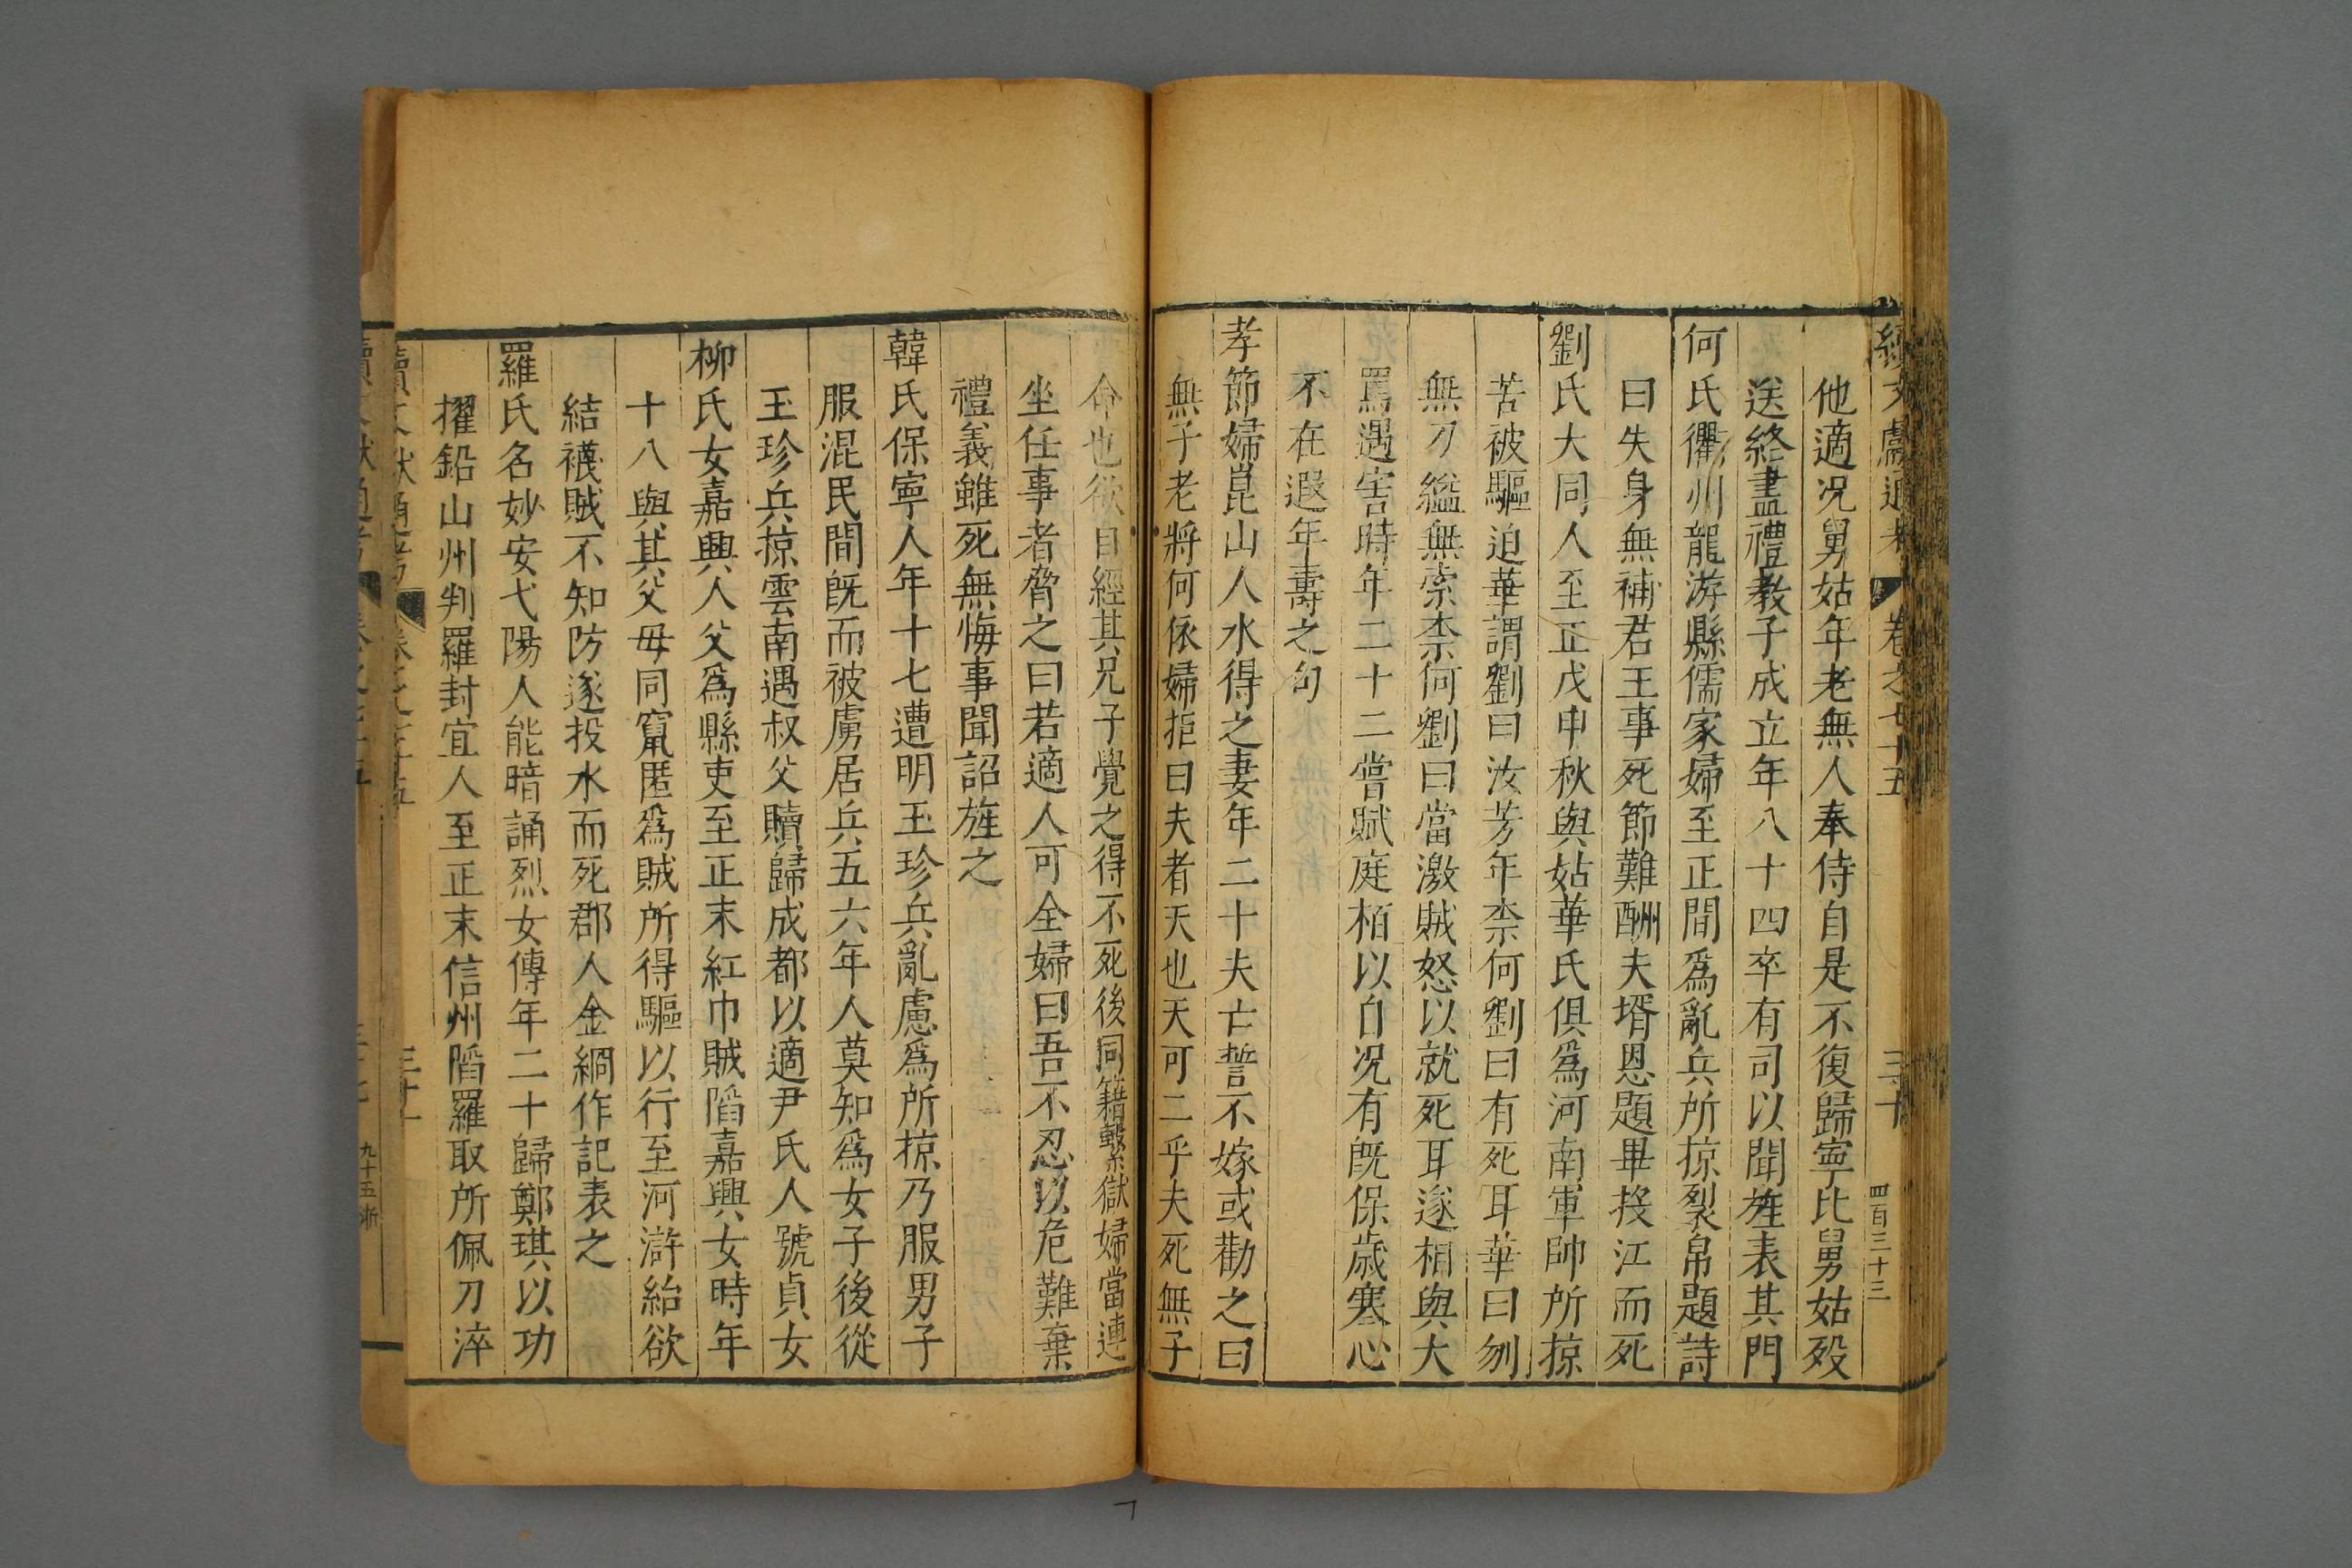 續文獻通考 卷之七十五 三十 四百三十三
他適况舅姑年老無人奉侍自是不復歸寧比舅姑歿
送終盡禮教子成立年八十四卒有司以聞旌表其門
何氏衢州龍游縣儒家婦至正間爲亂兵所掠裂帛題詩
曰失身無補君王事死節難酬夫壻恩題畢投江而死
劉氏大同人至正戊申秋與姑華氏俱爲河南軍帥所掠
苦被驅迫華謂劉曰汝芳年柰何劉曰有死耳華曰刎
無刀縊無索柰何劉曰當激賊怒以就死耳遂相與大
罵遇害時年二十二嘗賦庭栢以自况有旣保歲寒心
不在遐年壽之句
孝節婦崑山人水得之妻年二十夫亡誓不嫁或勸之曰
無子老將何依婦拒曰夫者天也天可二乎夫死無子
命也欲自經其兄子覺之得不死後同籍繫獄婦當連
坐任事者脅之曰若適人可全婦曰吾不忍以危難棄
禮義雖死無悔事聞詔旌之
韓氏保寧人年十七遭明玉珍兵亂慮爲所掠乃服男子
服混民間旣而被虜居兵五六年人莫知爲女子後從
玉珍兵掠雲南遇叔父贖歸成都以適尹氏人號貞女
柳氏女嘉興人父爲縣吏至正末紅巾賊䧟嘉興女時年
十八與其父母同竄匿爲賊所得驅以行至河滸紿欲
結襪賊不知防遂投水而死郡人金絅作記表之
羅氏名妙安弋陽人能暗誦烈女傳年二十歸鄭琪以功
擢鉛山州判羅封宜人至正末信州䧟羅取所佩刀淬
續文獻通考 卷之七十五 三十一
九十五